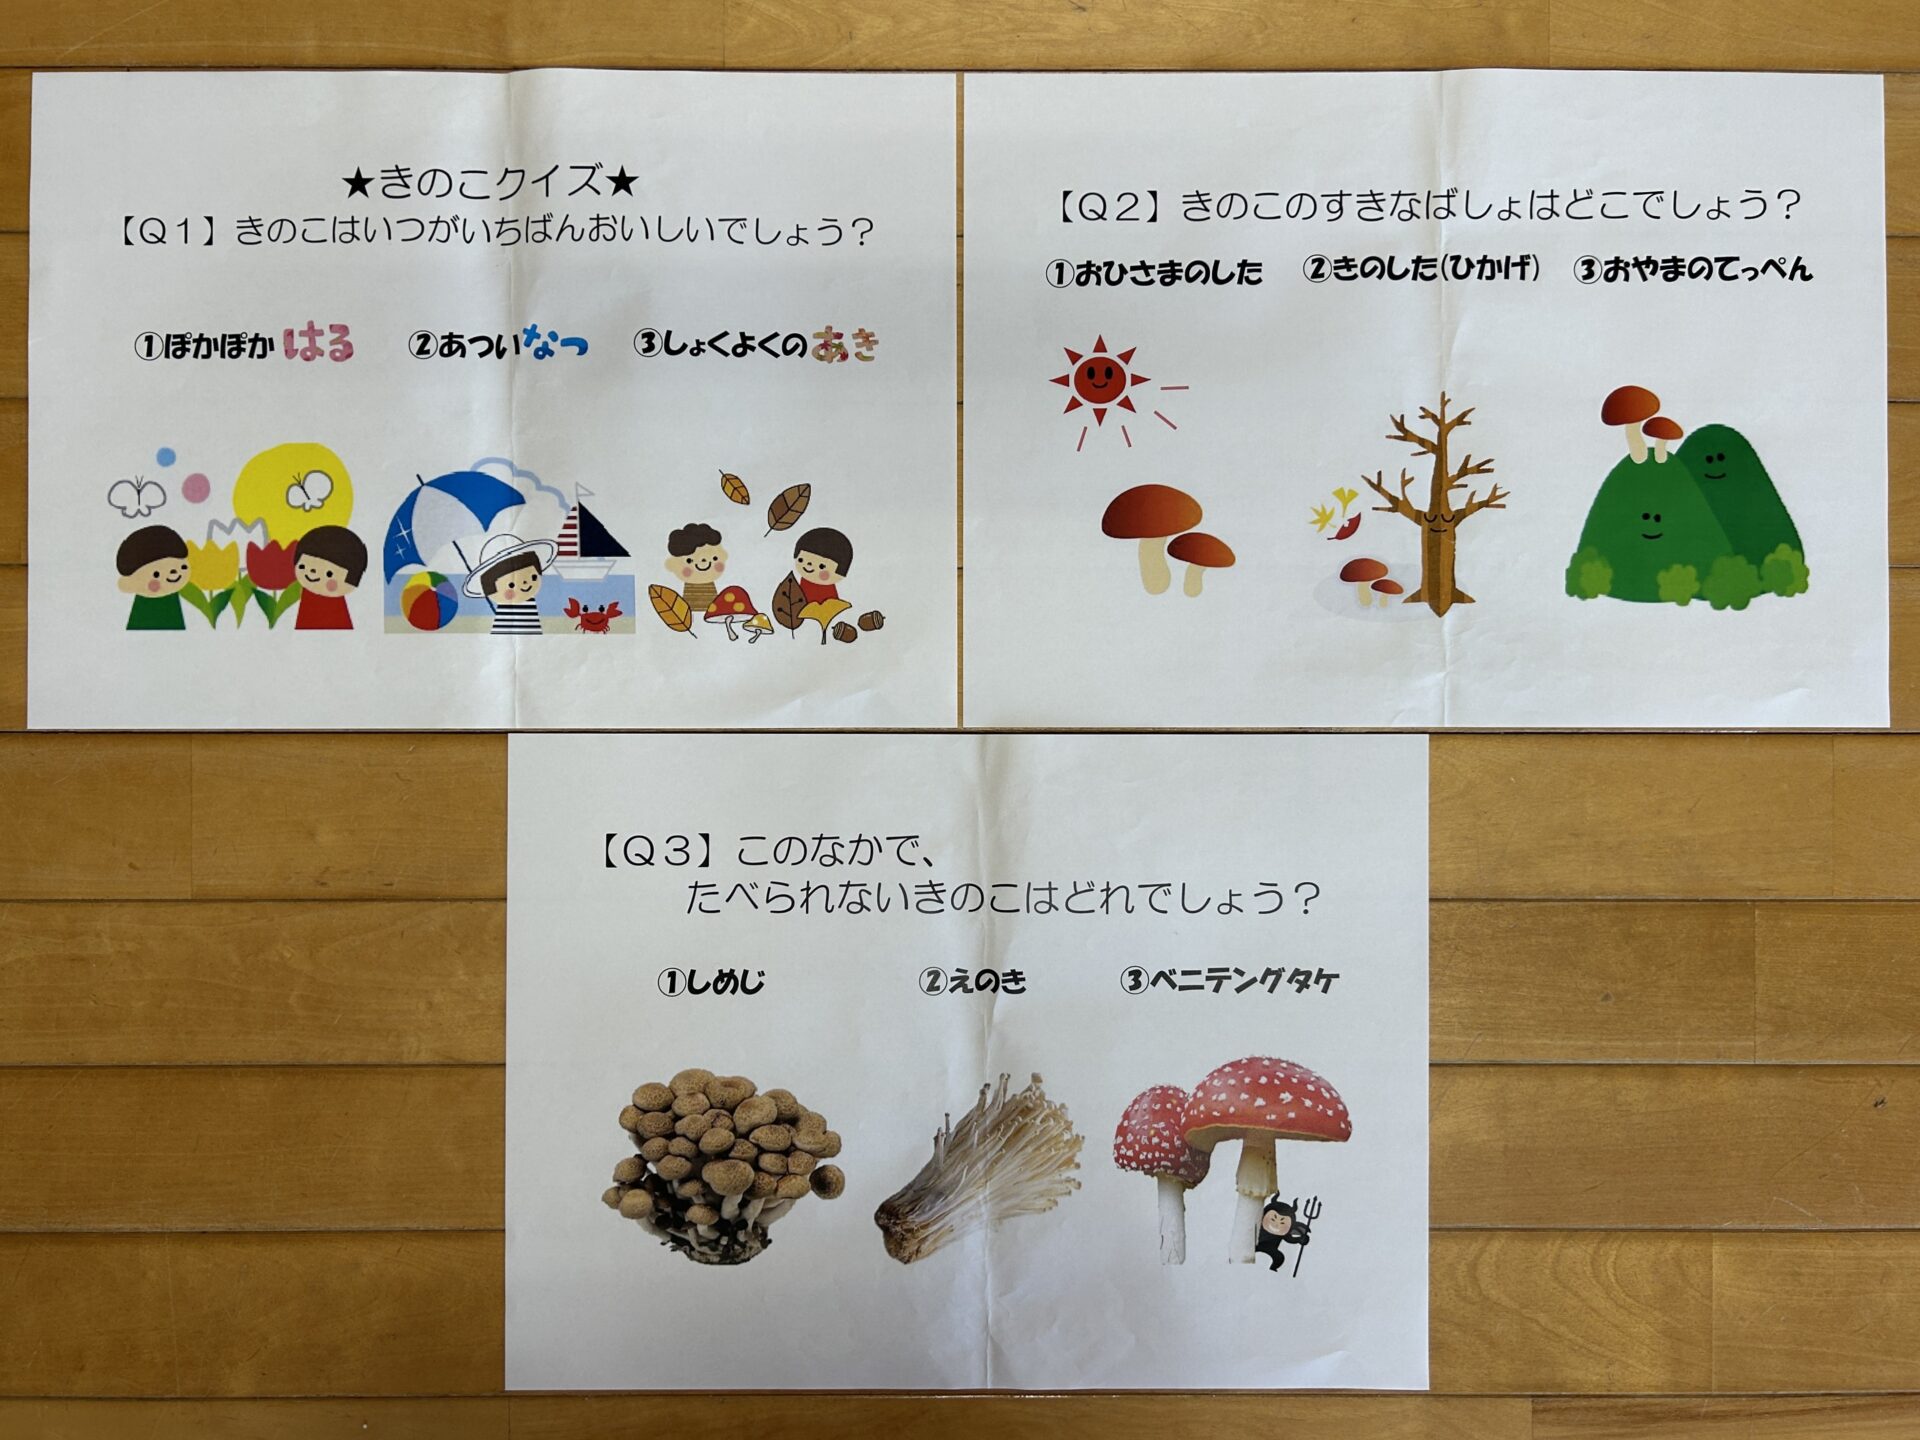 ★きのこクイズ★
【Q1】きのこはいつがいちばんおいしいでしょう？
①ぽかぽか はる ②あつい なつ ③しょくよくの あき
【Q2】きのこのすきなばしょはどこでしょう？
①おひさまのした ②きのした(ひかげ) ③おやまのてっぺん
【Q3】このなかで、
たべられないきのこはどれでしょう？
①しめじ ②えのき ③ベニテングタケ